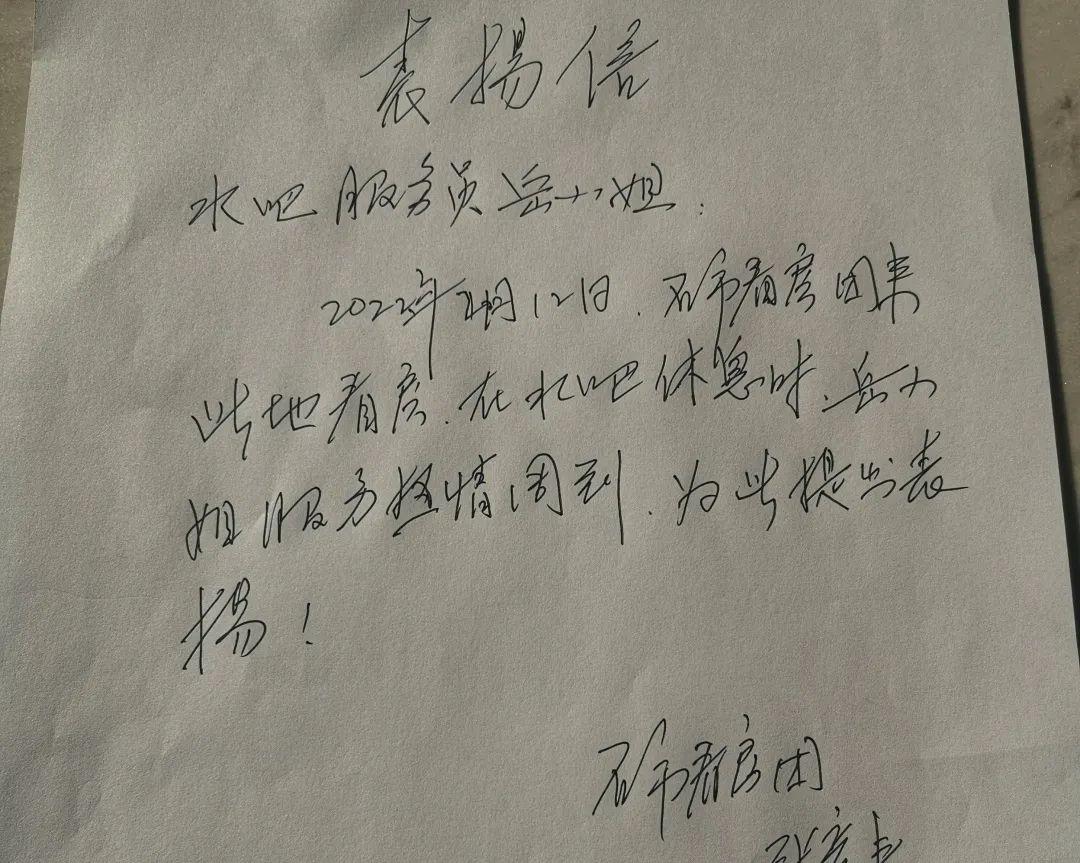 表揚信
水吧服务员岳小姐:
2022年月12日.石市看房团来
此地看房.在水吧休息时.岳小
姐服务热情周到.为此提出表
揚!
石市看房团